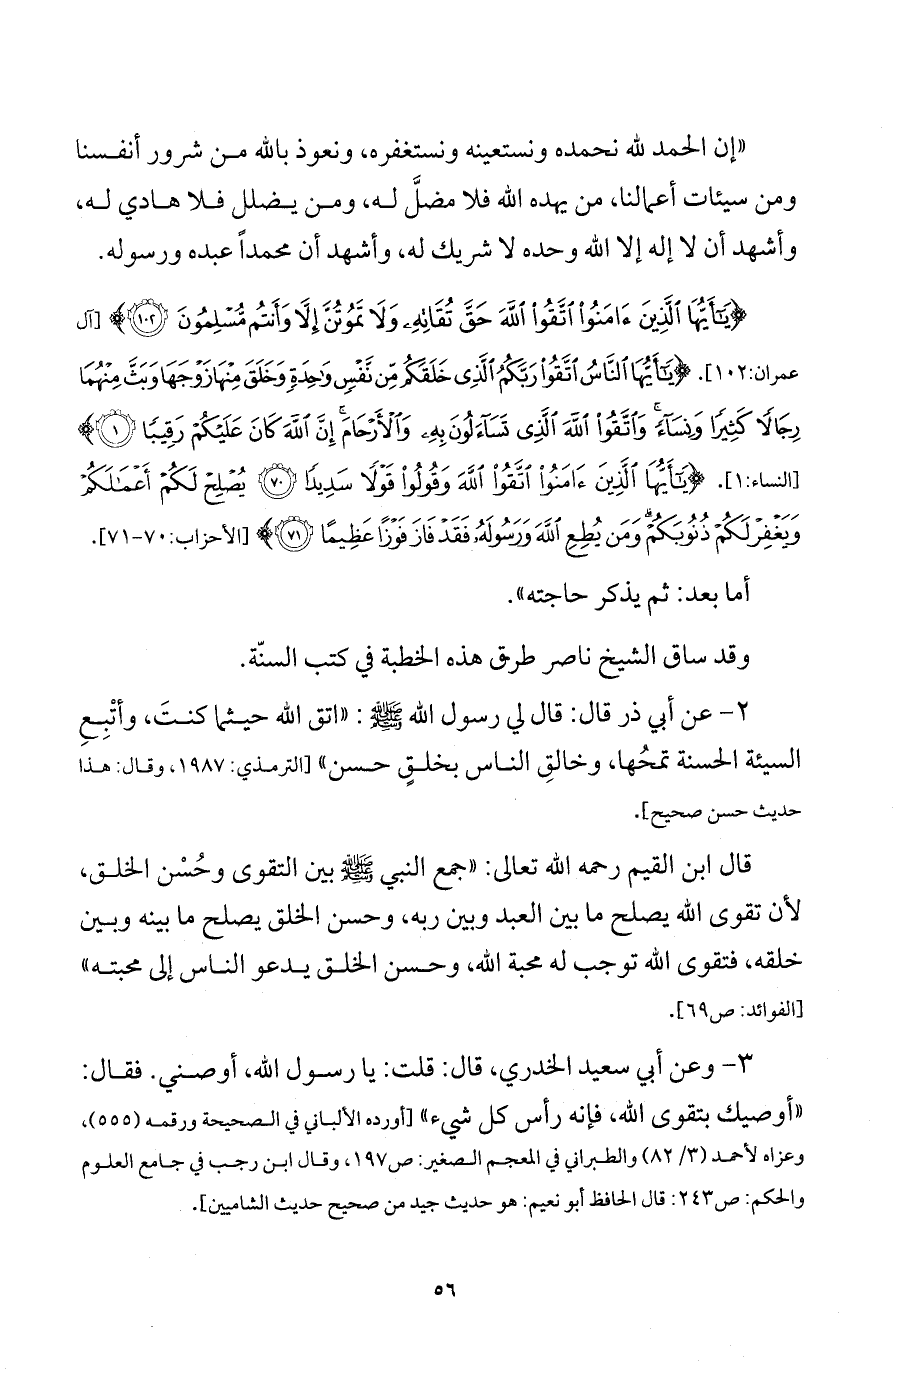 «إن الحمد لله نحمده ونستعينه ونستغفره، ونعوذ بالله من شرور أنفسنا
ومن سيئات أعمالنا، من يهده الله فلا مضلَّ له، ومن يضلل فلا هادي له،
وأشهد أن لا إله إلا الله وحده لا شريك له، وأشهد أن محمداً عبده ورسوله.
﴿يَٰٓأَيُّهَا ٱلَّذِينَ ءَامَنُوا۟ ٱتَّقُوا۟ ٱللَّهَ حَقَّ تُقَاتِهِۦ وَلَا تَمُوتُنَّ إِلَّا وَأَنتُم مُّسْلِمُونَ ١٠٢﴾ [آل
عمران:١٠٢]. ﴿يَٰٓأَيُّهَا ٱلنَّاسُ ٱتَّقُوا۟ رَبَّكُمُ ٱلَّذِى خَلَقَكُم مِّن نَّفْسٍ وَٰحِدَةٍ وَخَلَقَ مِنْهَا زَوْجَهَا وَبَثَّ مِنْهُمَا
رِجَالًا كَثِيرًا وَنِسَآءً ۚ وَٱتَّقُوا۟ ٱللَّهَ ٱلَّذِى تَسَآءَلُونَ بِهِۦ وَٱلْأَرْحَامَ ۚ إِنَّ ٱللَّهَ كَانَ عَلَيْكُمْ رَقِيبًا ١﴾
[النساء:١]. ﴿يَٰٓأَيُّهَا ٱلَّذِينَ ءَامَنُوا۟ ٱتَّقُوا۟ ٱللَّهَ وَقُولُوا۟ قَوْلًا سَدِيدًا ٧٠ يُصْلِحْ لَكُمْ أَعْمَٰلَكُمْ
وَيَغْفِرْ لَكُمْ ذُنُوبَكُمْ ۗ وَمَن يُطِعِ ٱللَّهَ وَرَسُولَهُۥ فَقَدْ فَازَ فَوْزًا عَظِيمًا ٧١﴾ [الأحزاب:٧٠-٧١].
أما بعد: ثم يذكر حاجته».
وقد ساق الشيخ ناصر طرق هذه الخطبة في كتب السنّة.
٢- عن أبي ذر قال: قال لي رسول الله ﷺ : «اتق الله حيثما كنتَ، وأتْبِعِ
السيئة الحسنة تمحُها، وخالقِ الناس بخلقٍ حسن» [الترمذي: ١٩٨٧، وقال: هذا
حديث حسن صحيح].
قال ابن القيم رحمه الله تعالى: «جمع النبي ﷺ بين التقوى وحُسْن الخلق،
لأن تقوى الله يصلح ما بين العبد وبين ربه، وحسن الخلق يصلح ما بينه وبين
خلقه، فتقوى الله توجب له محبة الله، وحسن الخلق يدعو الناس إلى محبته»
[الفوائد: ص٦٩].
٣- وعن أبي سعيد الخدري، قال: قلت: يا رسول الله، أوصني. فقال:
«أوصيك بتقوى الله، فإنه رأس كل شيء» [أورده الألباني في الصحيحة ورقمه (٥٥٥)،
وعزاه لأحمد (٣/ ٨٢) والطبراني في المعجم الصغير: ص١٩٧، وقال ابن رجب في جامع العلوم
والحكم: ص٢٤٣: قال الحافظ أبو نعيم: هو حديث جيد من صحيح حديث الشاميين].
٥٦